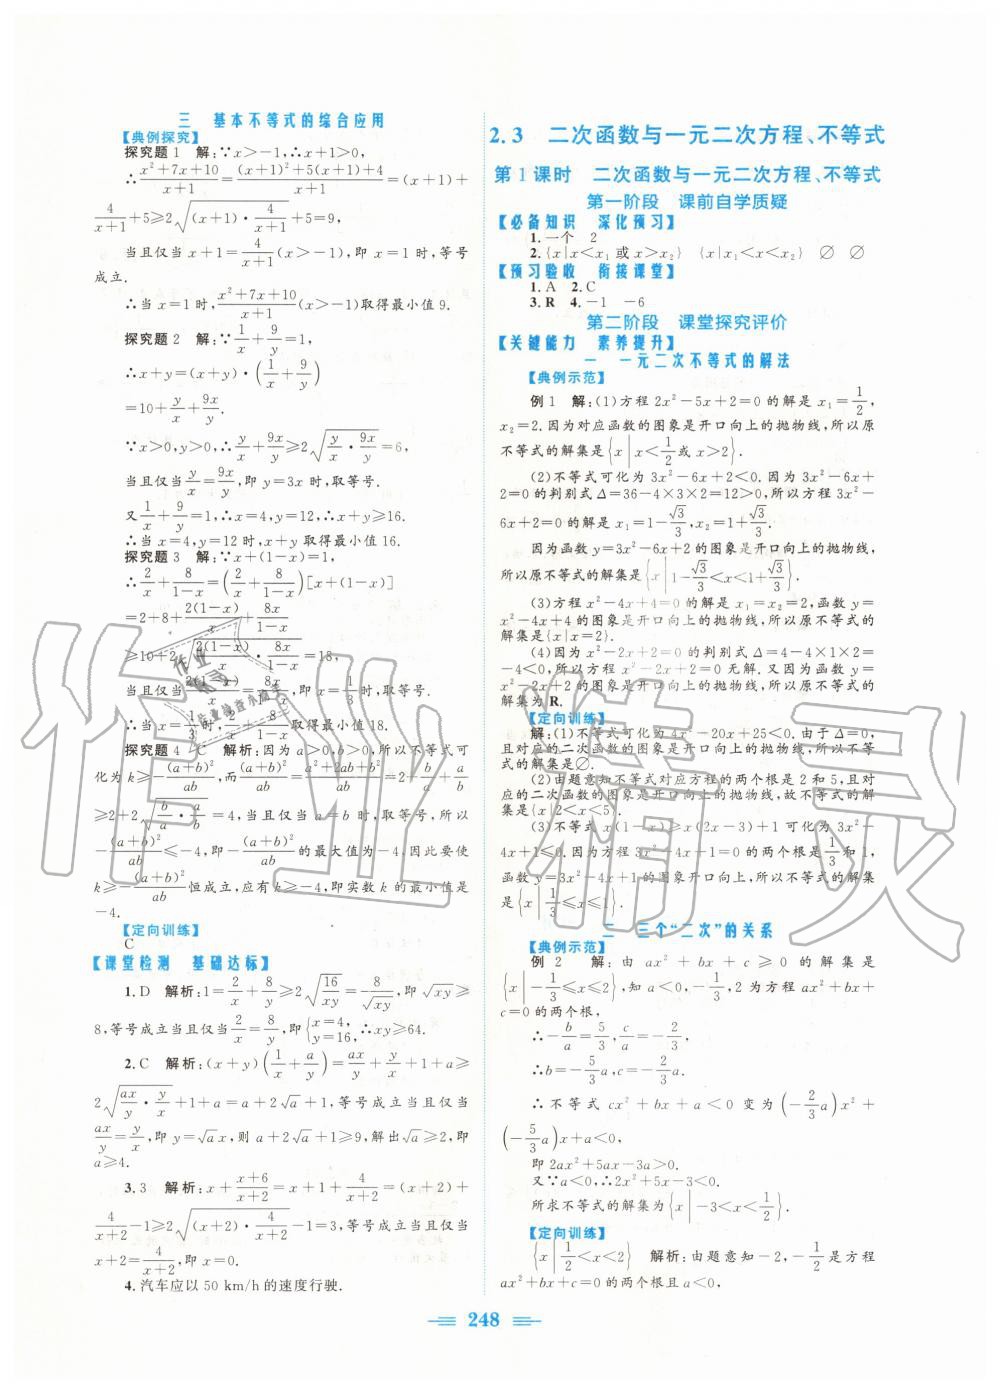 三 基本不等式的综合应用
【典例探究】
探究题1 解:∵x>-1,∴x+1>0,
∴(x²+7x+10)/(x+1)=((x+1)²+5(x+1)+4)/(x+1)=(x+1)+
4/(x+1)+5≥2√((x+1)·4/(x+1))+5=9,
当且仅当x+1=4/(x+1),即x=1时,等号
成立.
∴当x=1时,(x²+7x+10)/(x+1)(x>-1)取得最小值9.
探究题2 解:∵1/x+9/y=1,
∴x+y=(x+y)·(1/x+9/y)
=10+y/x+9x/y.
∵x>0,y>0,∴y/x+9x/y≥2√(y/x·9x/y)=6,
当且仅当y/x=9x/y,即y=3x时,取等号.
又1/x+9/y=1,∴x=4,y=12,∴x+y≥16.
∴当x=4,y=12时,x+y取得最小值16.
探究题3 解:∵x+(1-x)=1,
∴2/x+8/(1-x)=(2/x+8/(1-x))[x+(1-x)]
=2+8+2(1-x)/x+8x/(1-x)
≥10+2√(2(1-x)/x·8x/(1-x))=18,
当且仅当2(1-x)/x=8x/(1-x),即x=1/3时,取等号.
∴当x=1/3时,2/x+8/(1-x)取得最小值18.
探究题4 C 解析:因为a>0,b>0,所以不等式可
化为k≥-(a+b)²/ab,而(a+b)²/ab=(a²+2ab+b²)/ab=2+a/b+b/a
≥2+2√(b/a·a/b)=4,当且仅当a=b时,取等号,所以
-(a+b)²/ab≤-4,即-(a+b)²/ab的最大值为-4,因此要使
k≥-(a+b)²/ab恒成立,应有k≥-4,即实数k的最小值是
-4.
【定向训练】
C
【课堂检测 基础达标】
1.D 解析:1=2/x+8/y≥2√(16/xy)=8/√xy,即√xy≥
8,等号成立当且仅当2/x=8/y,即{x=4,y=16,∴xy≥64.
2.C 解析:(x+y)(1/x+a/y)=ax/y+y/x+1+a≥
2√(ax/y·y/x)+1+a=a+2√a+1,等号成立当且仅当
ax/y=y/x,即y=√a x,则a+2√a+1≥9,解出√a≥2,即
a≥4.
3.3 解析:x+(x+6)/(x+2)=x+1+4/(x+2)=(x+2)+
4/(x+2)-1≥2√((x+2)·4/(x+2))-1=3,等号成立当且仅当
x+2=4/(x+2),即x=0.
4.汽车应以50 km/h的速度行驶.
2.3 二次函数与一元二次方程、不等式
第1课时 二次函数与一元二次方程、不等式
第一阶段 课前自学质疑
【必备知识 深化预习】
1.一个 2
2.{x|x<x₁或x>x₂} {x|x₁<x<x₂} ∅ ∅
【预习验收 衔接课堂】
1.A 2.C
3.R 4.-1 -6
第二阶段 课堂探究评价
【关键能力 素养提升】
一 一元二次不等式的解法
【典例示范】
例1 解:(1)方程2x²-5x+2=0的解是x₁=1/2,
x₂=2.因为对应函数的图象是开口向上的抛物线,所以原
不等式的解集是{x|x<1/2或x>2}.
(2)不等式可化为3x²-6x+2<0.因为3x²-6x+
2=0的判别式Δ=36-4×3×2=12>0,所以方程3x²-
6x+2=0的解是x₁=1-√3/3,x₂=1+√3/3.
因为函数y=3x²-6x+2的图象是开口向上的抛物线,
所以原不等式的解集是{x|1-√3/3<x<1+√3/3}.
(3)方程x²-4x+4=0的解是x₁=x₂=2,函数y=
x²-4x+4的图象是开口向上的抛物线,所以原不等式的
解集是{x|x=2}.
(4)因为x²-4x+5=0的判别式Δ=(-4)²-4×5×1=
-4<0,所以方程x²-4x+5=0无解.又因为函数y=
x²-4x+5的图象是开口向上的抛物线,所以原不等式的
解集为R.
【定向训练】
解:(1)不等式可化为4x²-20x+25<0.由于Δ=0,
且对应的二次函数的图象是开口向上的抛物线,所以不等
式的解集是∅.
(2)由题意知不等式对应方程的两个根是2和5,且对
应的二次函数的图象是开口向上的抛物线,故不等式的解
集是{x|2<x<5}.
(3)不等式x(1-x)≥x(2x-3)+1可化为3x²-
4x+1≤0.因为方程3x²-4x+1=0的两个根是1/3和1,
函数y=3x²-4x+1的图象开口向上,所以不等式的解集
是{x|1/3≤x≤1}.
二 三个“二次”的关系
【典例示范】
例2 解:由ax²+bx+c≥0的解集是
{x|-1/3≤x≤2},知a<0,-1/3,2为方程ax²+bx+
c=0的两个根,
∴-b/a=5/3,c/a=-2/3.
∴b=-5/3a,c=-2/3a.
∴不等式cx²+bx+a<0变为(-2/3a)x²+
(-5/3a)x+a<0,
即2ax²+5ax-3a>0.
又∵a<0,∴2x²+5x-3<0,
所求不等式的解集为{x|-3<x<1/2}.
【定向训练】
{x|1/2<x<2} 解析:由题意知-2,-1/2是方程
ax²+bx+c=0的两个根且a<0,
248
作业精灵